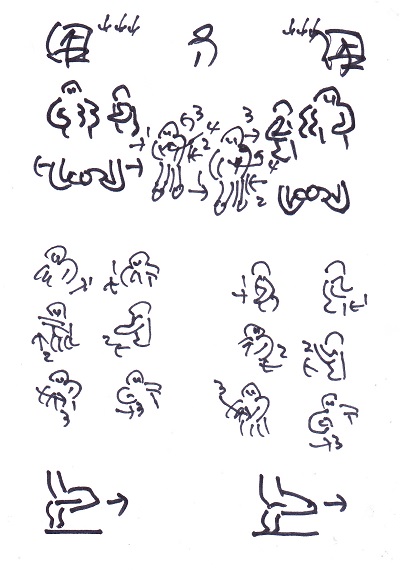 5 3 3
1 4
2 5 4
1 2
1 1 1 1
2 2 2 2
3 3 3 3